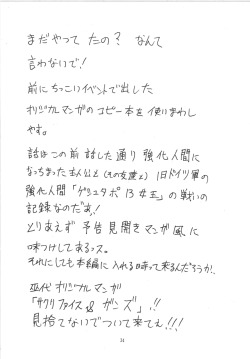 まだやってたの？なんて
言わないで！
前にちっこいイベントで出した
オリジナルマンガのコピー本を使いまわし
やす。
話はこの前話した通り強化人間に
なっちまった主人公と(その友達と)旧ドイツ軍の
強化人間「ゲシュタポ13女王」の戦いの
記録なのだぁ！
とりあえず予告見開きマンガ風に
味つけしてあるっス。
それにしても本編に入れる日って来るんだろうか。
オリジナルマンガ
「サクリファイス&ガンズ」！！
見捨てないでついて来ても！！！